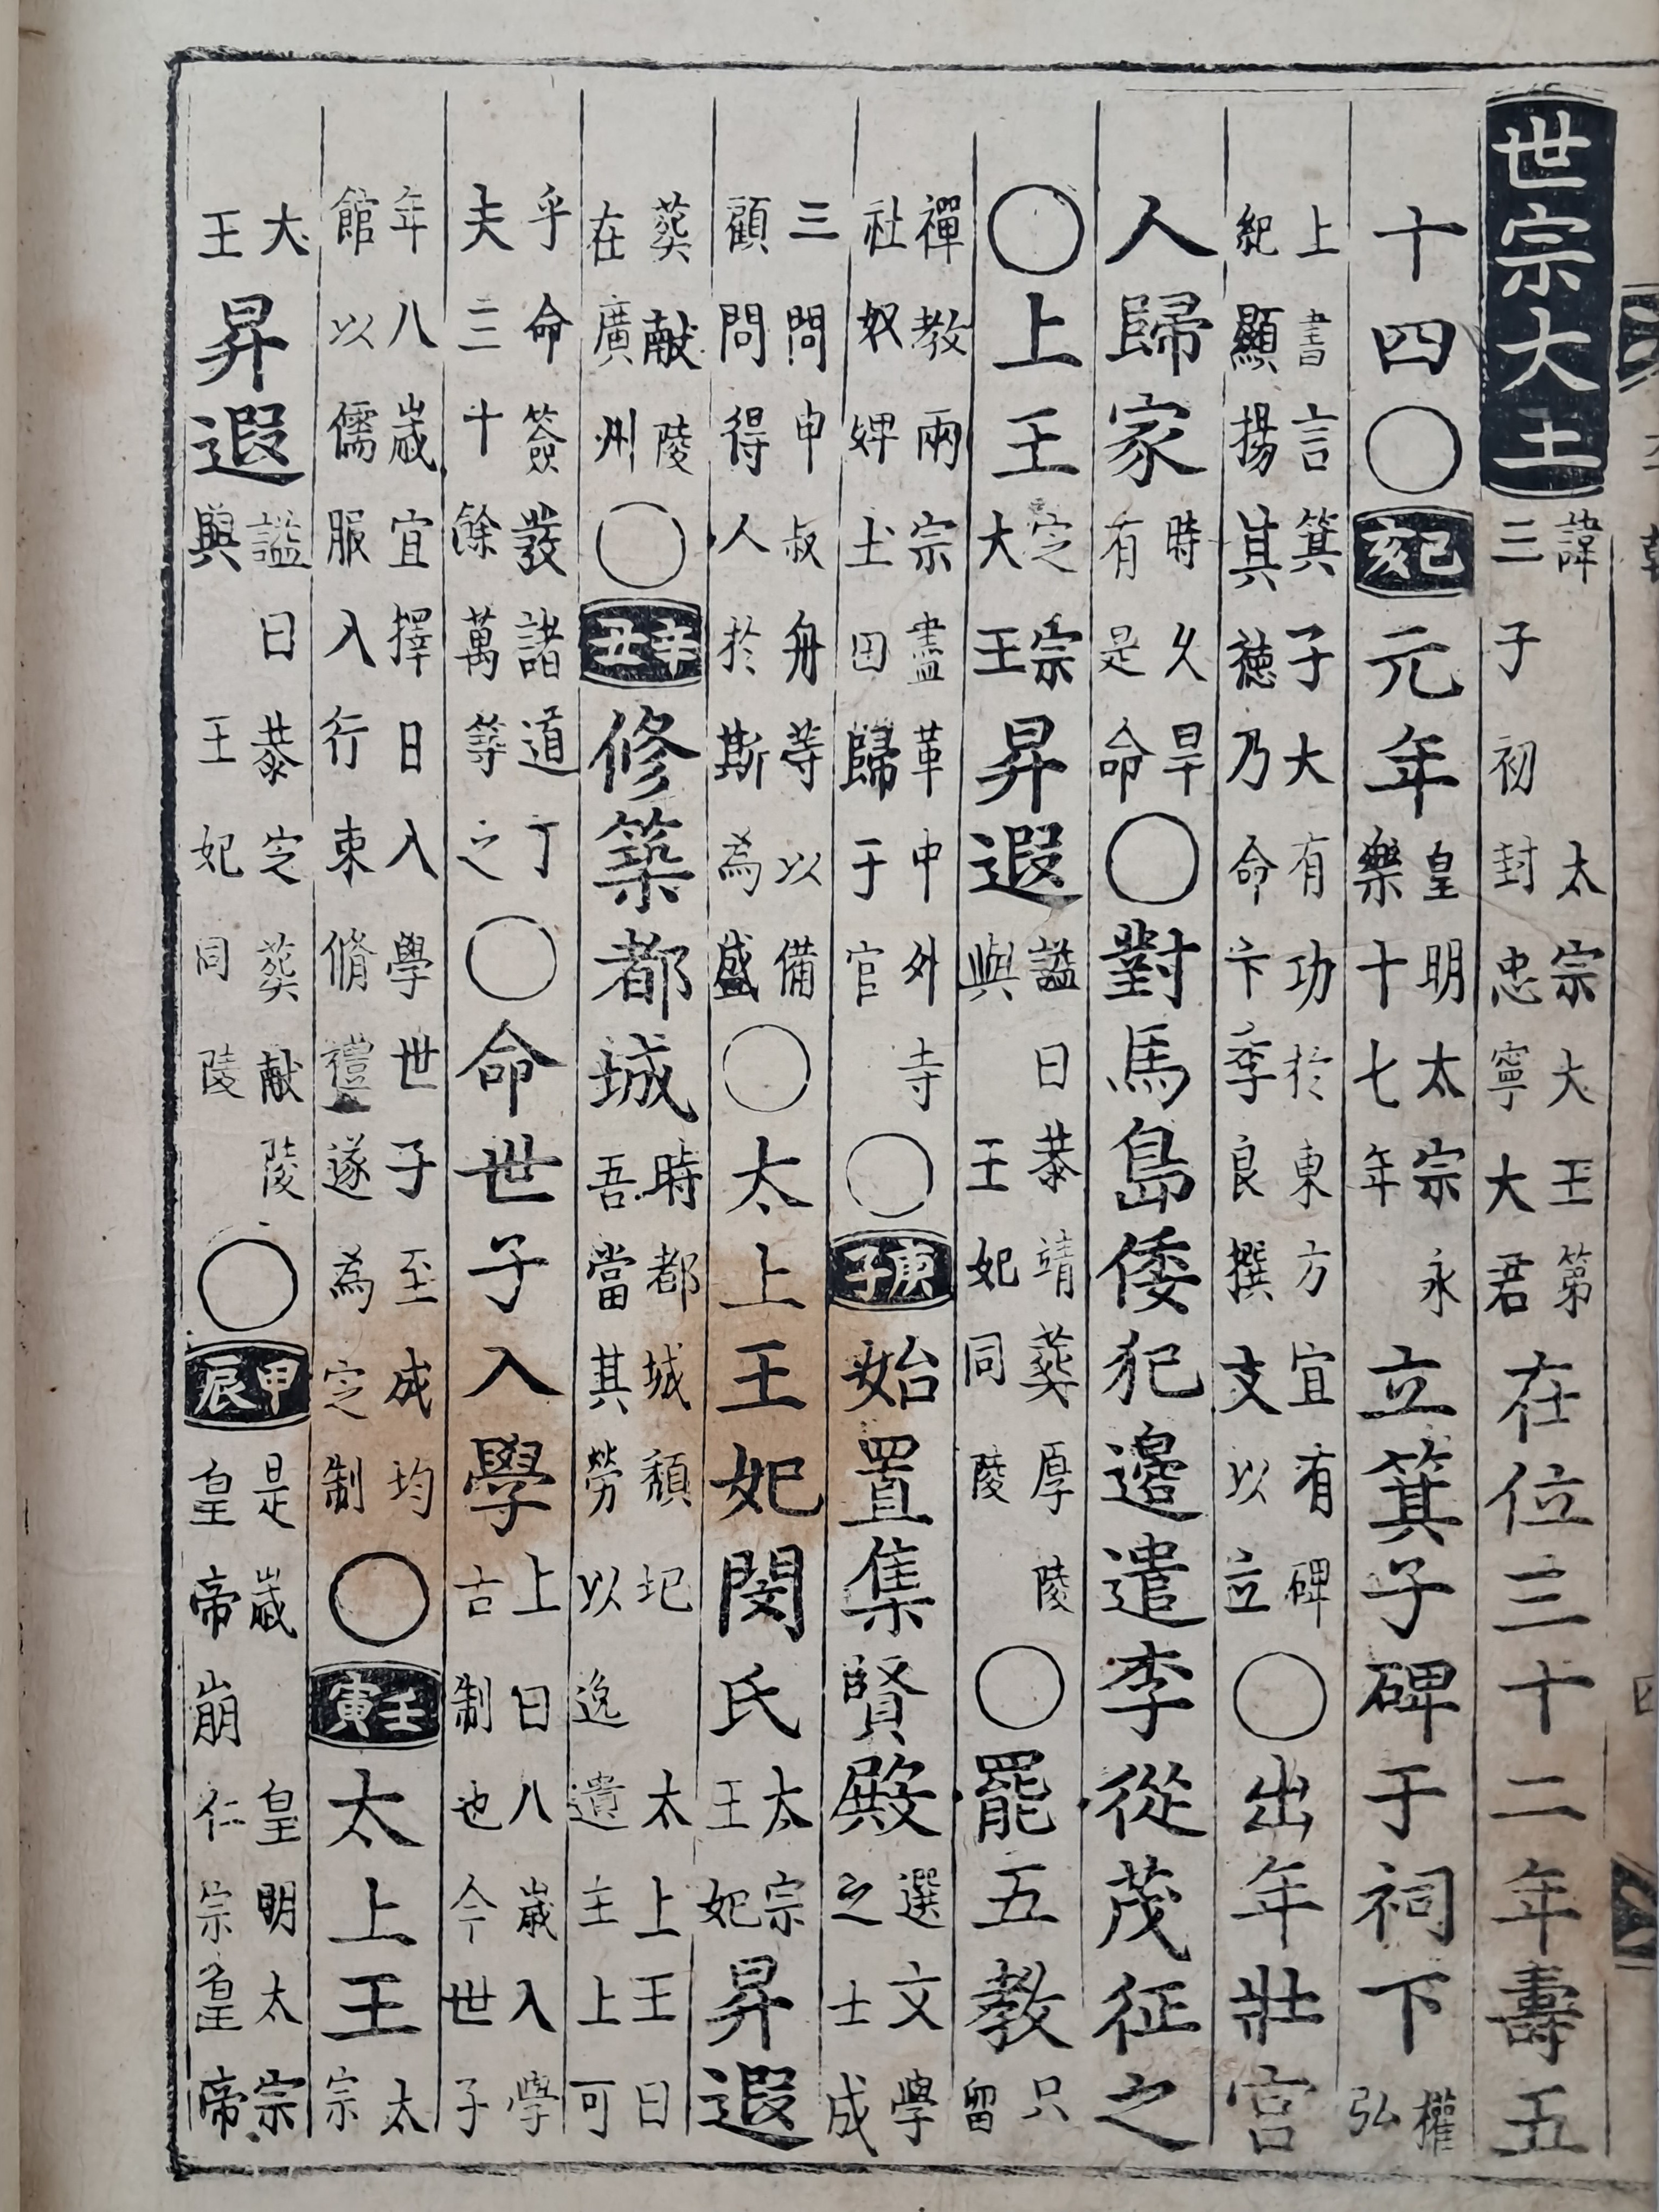 世宗大王諱太宗大王第三子初封忠寧大君在位三十二年壽五
十四〇己亥元年皇明太宗永樂十七年立箕子碑于祠下權弘
上書言箕子大有功於東方宜有碑紀顯揚其德乃命卞季良撰支以立〇出年壯宮
人歸家時久旱有是命〇對馬島倭犯邊遣李從茂征之
〇上王定宗大王昇遐謚曰恭靖葬厚陵與王妃同陵〇罷五教只留
禪教兩宗盡革中外寺社奴婢土田歸于官〇庚子始置集賢殿選文學之士成
三問申叔舟等以備顧問得人於斯為盛〇太上王妃閔氏太宗王妃昇遐
葬献陵在廣州〇辛丑修築都城時都城頹圮太上王曰吾當其勞以逸遺主上可
乎命簽發諸道丁夫三十餘萬築之〇命世子入學上曰八歲入學古制也今世子
年八歲宜擇日入學世子至成均館以儒服入行束脩禮遂為定制〇壬寅太上王太宗
大王昇遐謚曰恭定葬献陵與王妃同陵〇甲辰是歲皇明太宗皇帝崩仁宗皇帝